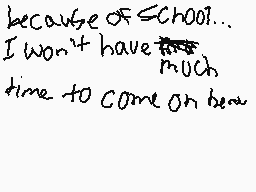 because of school...
I won't have
much
time to come on here